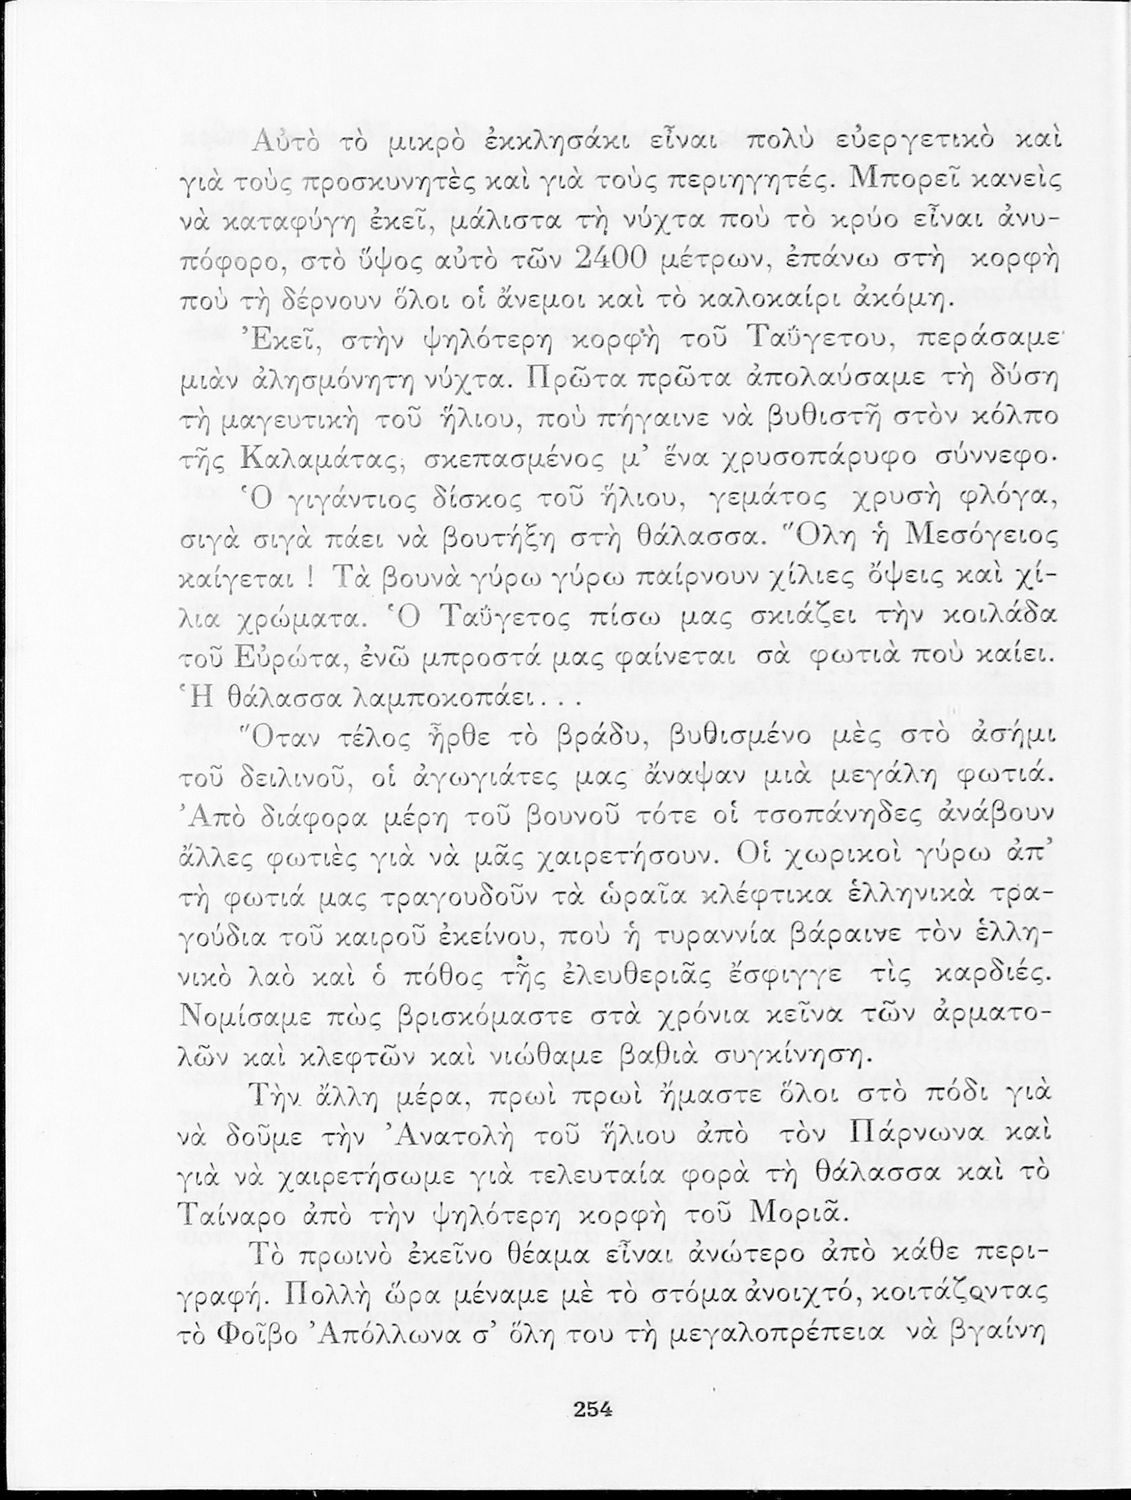 Αὐτὸ τὸ μικρὸ ἐκκλησάκι εἶναι πολὺ εὐεργετικὸ καὶ
γιὰ τοὺς προσκυνητὲς καὶ γιὰ τοὺς περιηγητές. Μπορεῖ κανεὶς
νὰ καταφύγη ἐκεῖ, μάλιστα τὴ νύχτα ποὺ τὸ κρύο εἶναι ἀνυ-
πόφορο, στὸ ὕψος αὐτὸ τῶν 2400 μέτρων, ἐπάνω στὴ κορφὴ
ποὺ τὴ δέρνουν ὅλοι οἱ ἄνεμοι καὶ τὸ καλοκαίρι ἀκόμη.
Ἐκεῖ, στὴν ψηλότερη κορφὴ τοῦ Ταΰγετου, περάσαμε
μιὰν ἀλησμόνητη νύχτα. Πρῶτα πρῶτα ἀπολαύσαμε τὴ δύση
τὴ μαγευτικὴ τοῦ ἥλιου, ποὺ πήγαινε νὰ βυθιστῆ στὸν κόλπο
τῆς Καλαμάτας, σκεπασμένος μ' ἕνα χρυσοπάρυφο σύννεφο.
Ὁ γιγάντιος δίσκος τοῦ ἥλιου, γεμάτος χρυσὴ φλόγα,
σιγὰ σιγὰ πάει νὰ βουτήξη στὴ θάλασσα. Ὅλη ἡ Μεσόγειος
καίγεται ! Τὰ βουνὰ γύρω γύρω παίρνουν χίλιες ὄψεις καὶ χί-
λια χρώματα. Ὁ Ταΰγετος πίσω μας σκιάζει τὴν κοιλάδα
τοῦ Εὐρώτα, ἐνῶ μπροστά μας φαίνεται σὰ φωτιὰ ποὺ καίει.
Ἡ θάλασσα λαμποκοπάει...
Ὅταν τέλος ἦρθε τὸ βράδυ, βυθισμένο μὲς στὸ ἀσήμι
τοῦ δειλινοῦ, οἱ ἀγωγιάτες μας ἄναψαν μιὰ μεγάλη φωτιά.
Ἀπὸ διάφορα μέρη τοῦ βουνοῦ τότε οἱ τσοπάνηδες ἀνάβουν
ἄλλες φωτιὲς γιὰ νὰ μᾶς χαιρετήσουν. Οἱ χωρικοὶ γύρω ἀπ'
τὴ φωτιά μας τραγουδοῦν τὰ ὡραῖα κλέφτικα ἑλληνικὰ τρα-
γούδια τοῦ καιροῦ ἐκείνου, ποὺ ἡ τυραννία βάραινε τὸν ἑλλη-
νικὸ λαὸ καὶ ὁ πόθος τῆς ἐλευθεριᾶς ἔσφιγγε τὶς καρδιές.
Νομίσαμε πὼς βρισκόμαστε στὰ χρόνια κεῖνα τῶν ἀρματο-
λῶν καὶ κλεφτῶν καὶ νιώθαμε βαθιὰ συγκίνηση.
Τὴν ἄλλη μέρα, πρωὶ πρωὶ ἤμαστε ὅλοι στὸ πόδι γιὰ
νὰ δοῦμε τὴν Ἀνατολὴ τοῦ ἥλιου ἀπὸ τὸν Πάρνωνα καὶ
γιὰ νὰ χαιρετήσωμε γιὰ τελευταία φορὰ τὴ θάλασσα καὶ τὸ
Ταίναρο ἀπὸ τὴν ψηλότερη κορφὴ τοῦ Μοριᾶ.
Τὸ πρωινὸ ἐκεῖνο θέαμα εἶναι ἀνώτερο ἀπὸ κάθε περι-
γραφή. Πολλὴ ὥρα μέναμε μὲ τὸ στόμα ἀνοιχτό, κοιτάζοντας
τὸ Φοῖβο Ἀπόλλωνα σ' ὅλη του τὴ μεγαλοπρέπεια νὰ βγαίνη
254